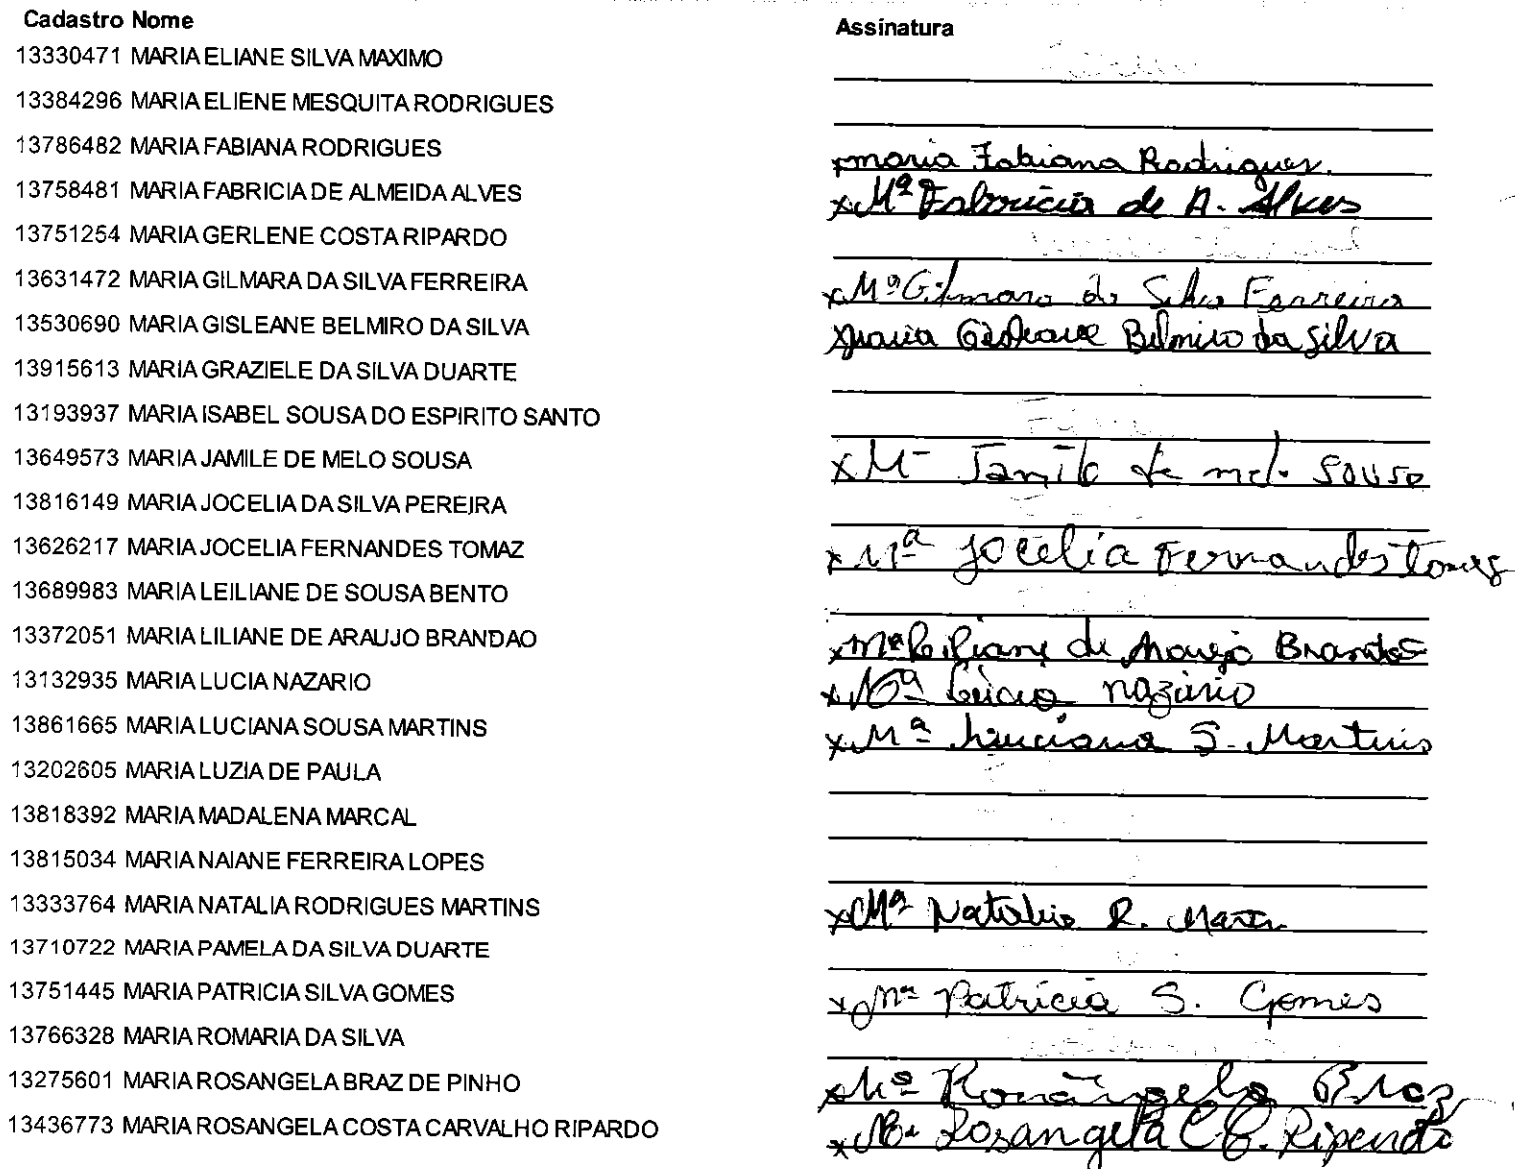 Cadastro Nome Assinatura
13330471 MARIA ELIANE SILVA MAXIMO
13384296 MARIA ELIENE MESQUITA RODRIGUES
13786482 MARIA FABIANA RODRIGUES x maria Fabiana Rodrigues.
13758481 MARIA FABRICIA DE ALMEIDA ALVES x Mª Fabricia de A. Alves
13751254 MARIA GERLENE COSTA RIPARDO
13631472 MARIA GILMARA DA SILVA FERREIRA x Mª Gilmara da Silva Ferreira
13530690 MARIA GISLEANE BELMIRO DA SILVA x Maria Gisleane Belmiro da Silva
13915613 MARIA GRAZIELE DA SILVA DUARTE
13193937 MARIA ISABEL SOUSA DO ESPIRITO SANTO
13649573 MARIA JAMILE DE MELO SOUSA x M- Jamile de melo Sousa
13816149 MARIA JOCELIA DA SILVA PEREIRA
13626217 MARIA JOCELIA FERNANDES TOMAZ x Mª Jocelia Fernandes Tomaz
13689983 MARIA LEILIANE DE SOUSA BENTO
13372051 MARIA LILIANE DE ARAUJO BRANDAO x Mª Liliane de Araujo Brandão
13132935 MARIA LUCIA NAZARIO x Mª Lúcia nazário
13861665 MARIA LUCIANA SOUSA MARTINS x Mª Luciana S. Martins
13202605 MARIA LUZIA DE PAULA
13818392 MARIA MADALENA MARCAL
13815034 MARIA NAIANE FERREIRA LOPES
13333764 MARIA NATALIA RODRIGUES MARTINS x Mª Natalia R. Martins
13710722 MARIA PAMELA DA SILVA DUARTE
13751445 MARIA PATRICIA SILVA GOMES x Mª Patrícia S. Gomes
13766328 MARIA ROMARIA DA SILVA
13275601 MARIA ROSANGELA BRAZ DE PINHO x Mª Rosângela Braz
13436773 MARIA ROSANGELA COSTA CARVALHO RIPARDO x Mª Rosangela C.C. Ripardo